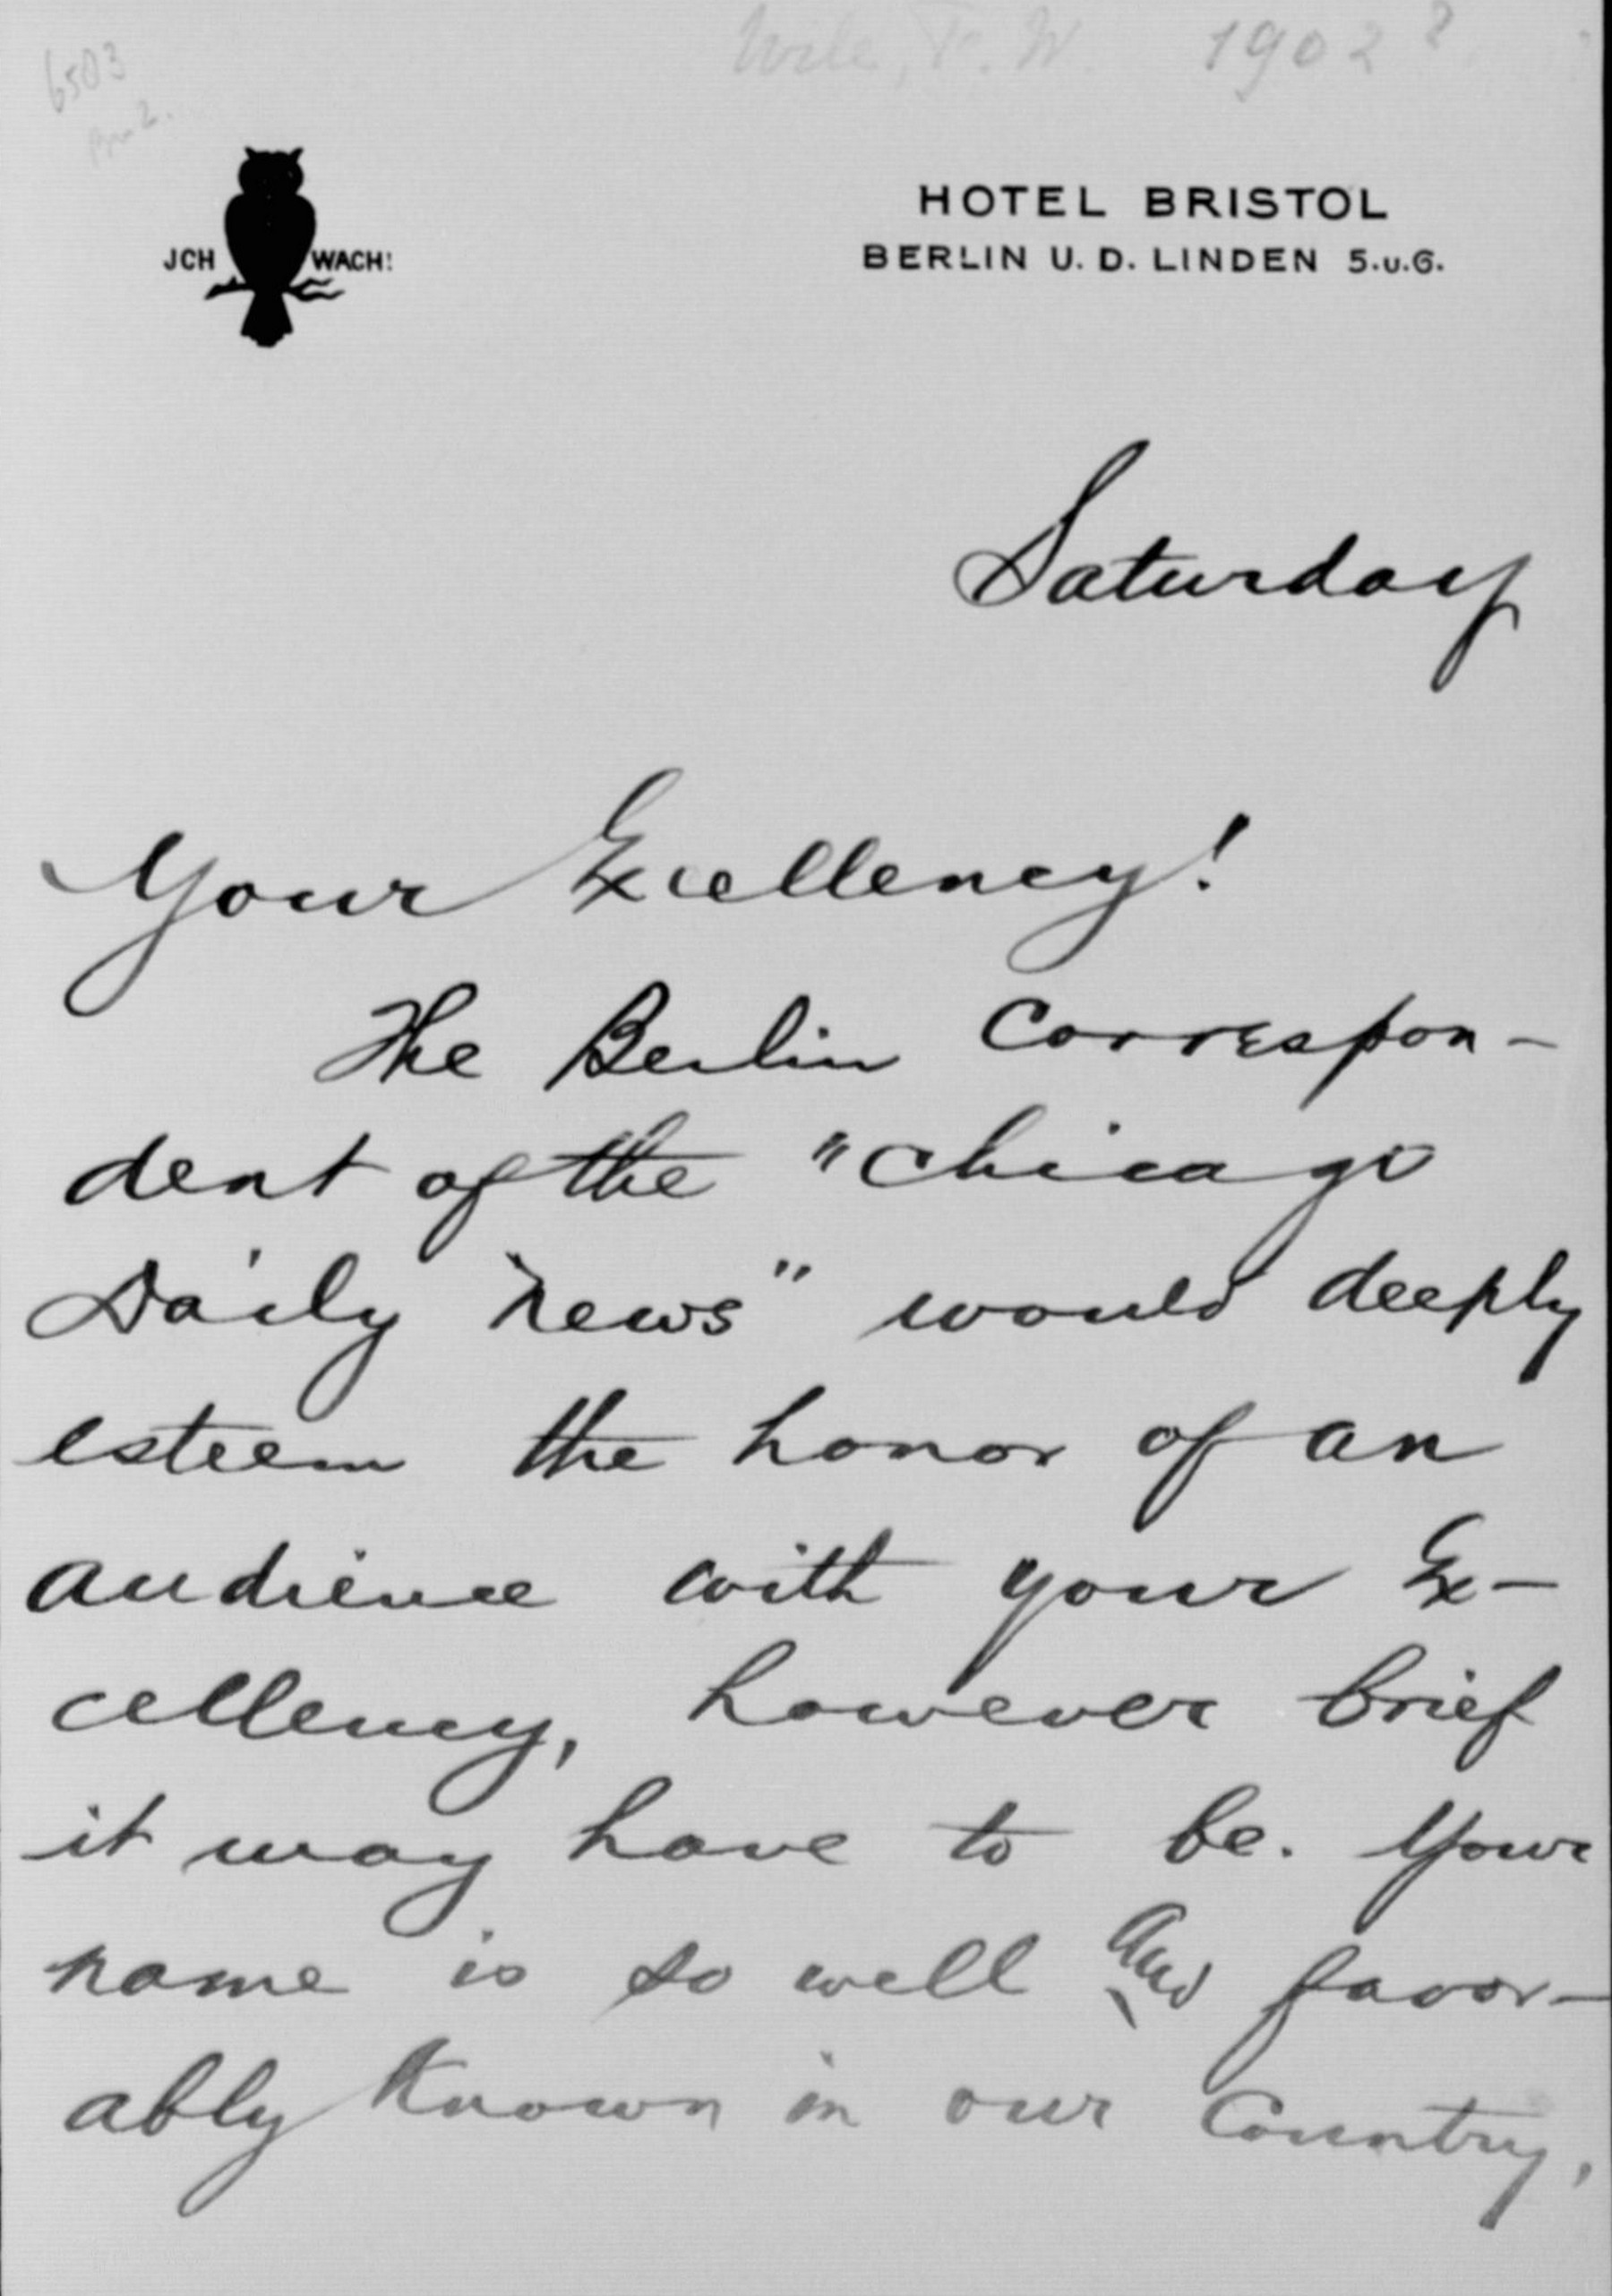 Wile, F. W. 1902?
6503
HOTEL BRISTOL
BERLIN U. D. LINDEN 5.u.6.
JCH WACH!
Saturday
Your Excellency!
The Berlin Correspon-
dent of the "Chicago
Daily News" would deeply
esteem the honor of an
audience with your Ex-
cellency, however brief
it may have to be. Your
name is so well and favor-
ably known in our Country,